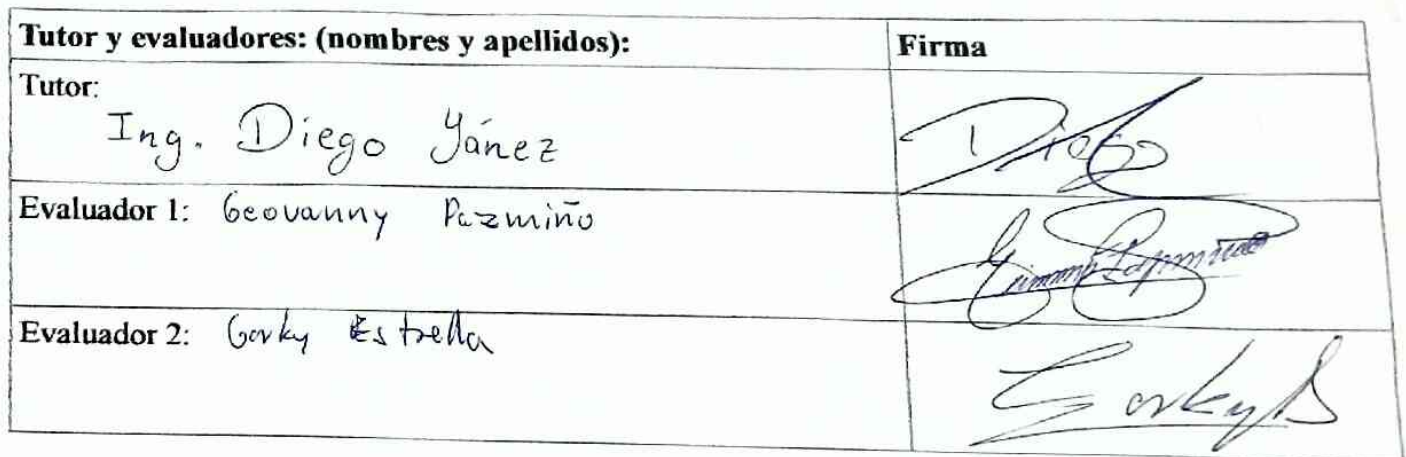 Tutor y evaluadores: (nombres y apellidos): Firma
Tutor:
Ing. Diego Yánez
Diego
Evaluador 1: Geovanny Pazmiño
Evaluador 2: Gorky Estrella
Gorky